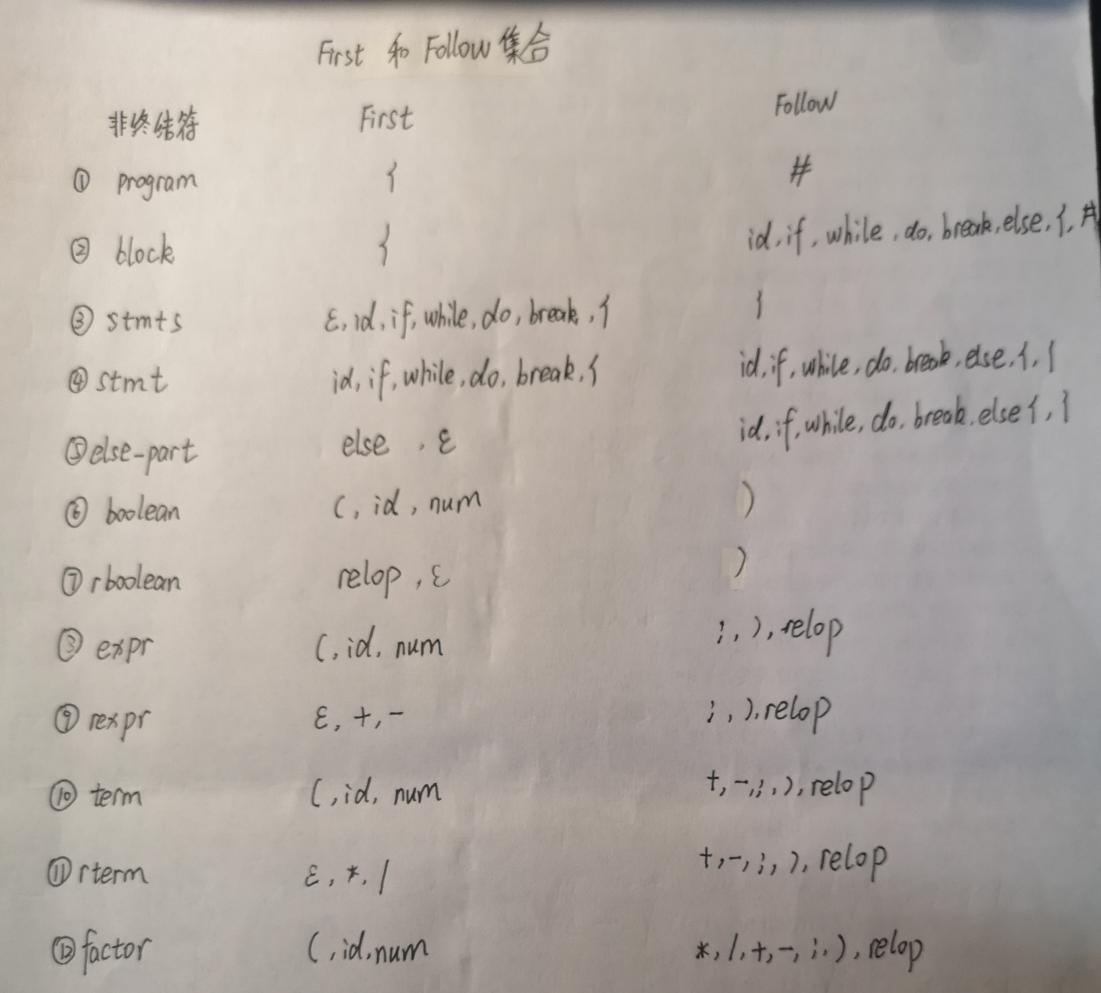 First 和 Follow 集合
非终结符 First Follow
① program { #
② block { id, if, while, do, break, else, {, #
③ stmts ε, id, if, while, do, break, { }
④ stmt id, if, while, do, break, { id, if, while, do, break, else, {, }
⑤ else-part else, ε id, if, while, do, break, else {, }
⑥ boolean (, id, num )
⑦ rboolean relop, ε )
⑧ expr (, id, num ;, ), relop
⑨ rexpr ε, +, - ;, ), relop
⑩ term (, id, num +, -, ;, ), relop
⑪ rterm ε, *, / +, -, ;, ), relop
⑫ factor (, id, num *, /, +, -, ;, ), relop